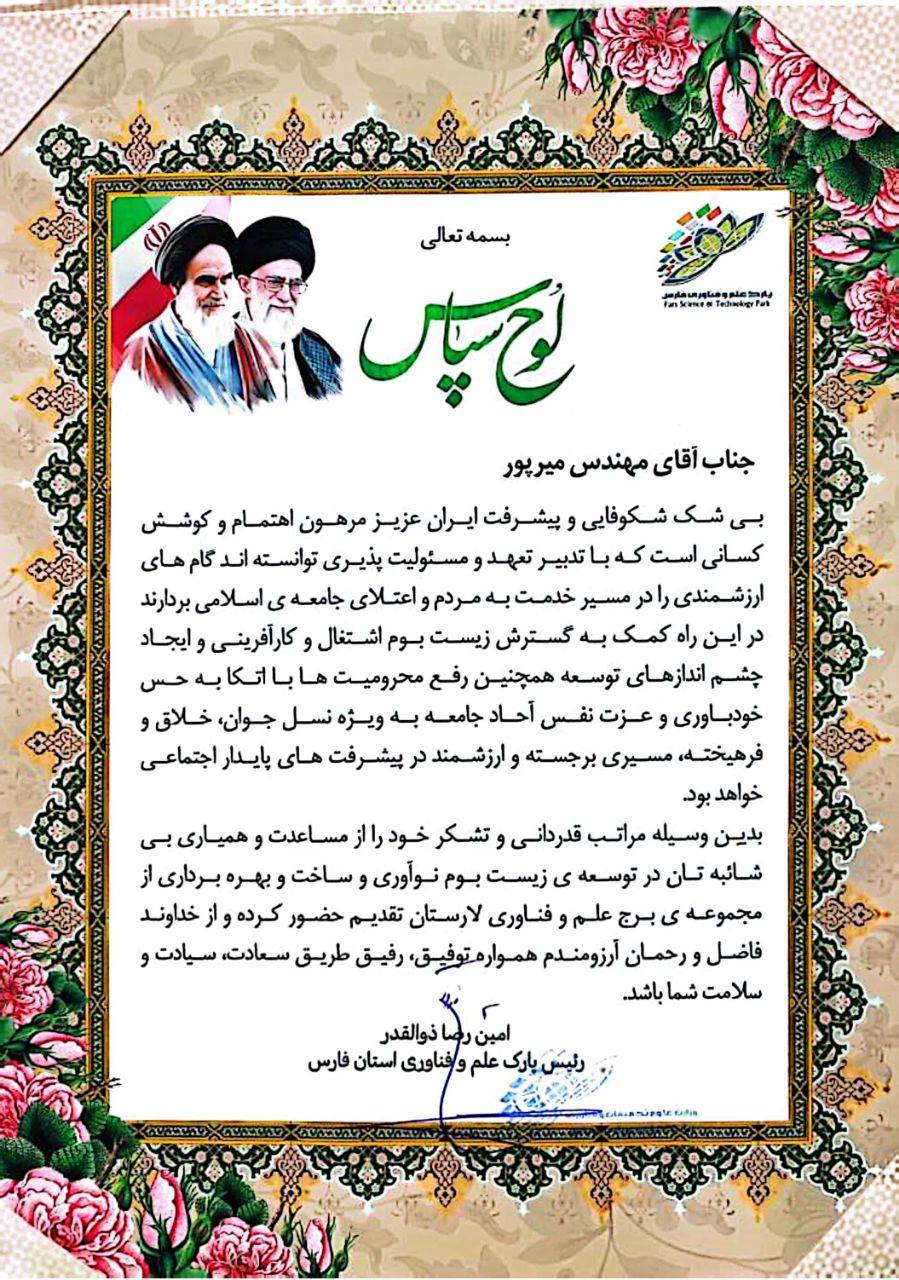 بسمه تعالی
پارک علم و فناوری فارس
Fars Science & Technology Park
لوح سپاس
جناب آقای مهندس میرپور
بی شک شکوفایی و پیشرفت ایران عزیز مرهون اهتمام و کوشش
کسانی است که با تدبیر تعهد و مسئولیت پذیری توانسته اند گام های
ارزشمندی را در مسیر خدمت به مردم و اعتلای جامعه ی اسلامی بردارند
در این راه کمک به گسترش زیست بوم اشتغال و کارآفرینی و ایجاد
چشم اندازهای توسعه همچنین رفع محرومیت ها با اتکا به حس
خودباوری و عزت نفس آحاد جامعه به ویژه نسل جوان، خلاق و
فرهیخته، مسیری برجسته و ارزشمند در پیشرفت های پایدار اجتماعی
خواهد بود.
بدین وسیله مراتب قدردانی و تشکر خود را از مساعدت و همیاری بی
شائبه تان در توسعه ی زیست بوم نوآوری و ساخت و بهره برداری از
مجموعه ی برج علم و فناوری لارستان تقدیم حضور کرده و از خداوند
فاضل و رحمان آرزومندم همواره توفیق، رفیق طریق سعادت، سیادت و
سلامت شما باشد.
امین رضا ذوالقدر
رئیس پارک علم و فناوری استان فارس